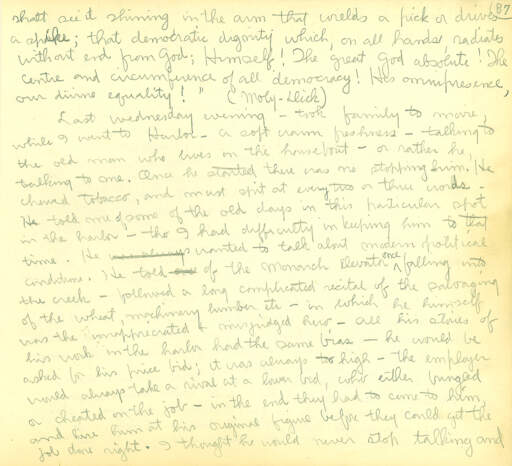 87
shalt see it shining in the arm that wields a pick or drives
a spike; that democratic dignity which, on all hands, radiates
without end from God; Himself! The great God absolute! The
centre and circumference of all democracy! His omnipresence,
our divine equality!" (Moby-Dick)
Last wednesday evening - took family to movie,
while I went to Harbor - a soft warm freshness - talking to
the old man who lives on the houseboat - or rather he,
talking to me. Once he started there was no stopping him. He
chewed tobacco, and must spit at every two or three words.
He told me of some of the old days in this particular spot
in the harbor - tho I had difficulty in keeping him to that
time. He always wanted to talk about modern political
conditions. He told of the Monarch Elevator once falling into
the creek - followed a long complicated recital of the salvaging
of the wheat, machinery lumber etc - in which he himself
was the unappreciated & misjudged hero - all his stories of
his work in the harbor had the same bias - he would be
asked for his price bid; it was always to high - the employer
would always take a rival at a lower bid, who either bungled
or cheated on the job - in the end they had to come to him,
and hire him at his original figure before they could get the
job done right. I thought he would never stop talking and